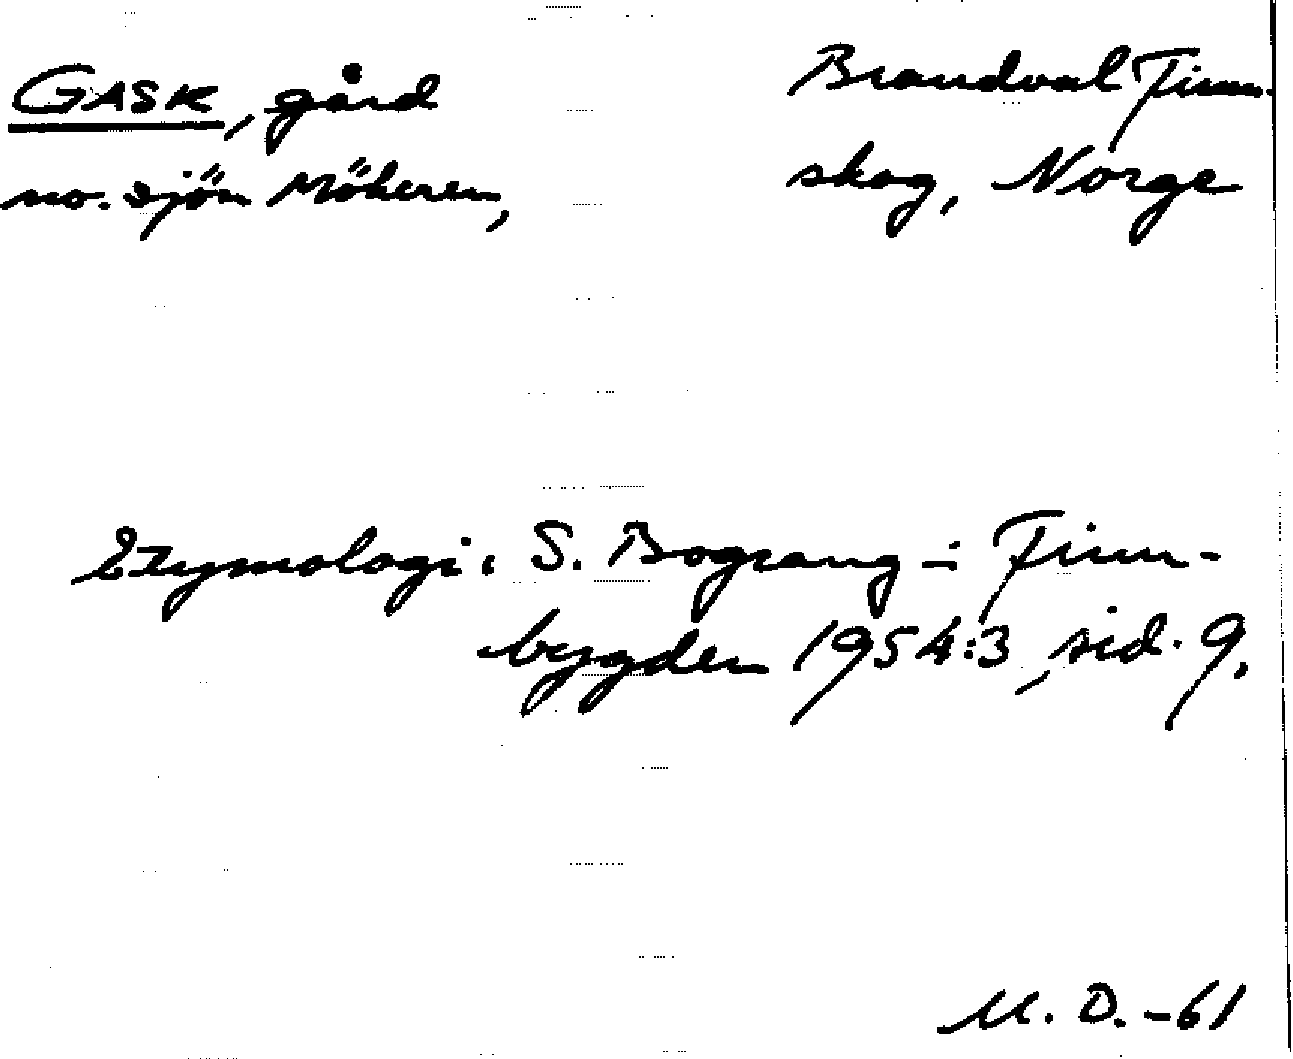 GASK, gård
no. sjön Mökeren,
Brandval Finn-
skog, Norge
Etymologi: S. Bograng i Finn-
bygden 1954:3, sid. 9.
M. D. -61